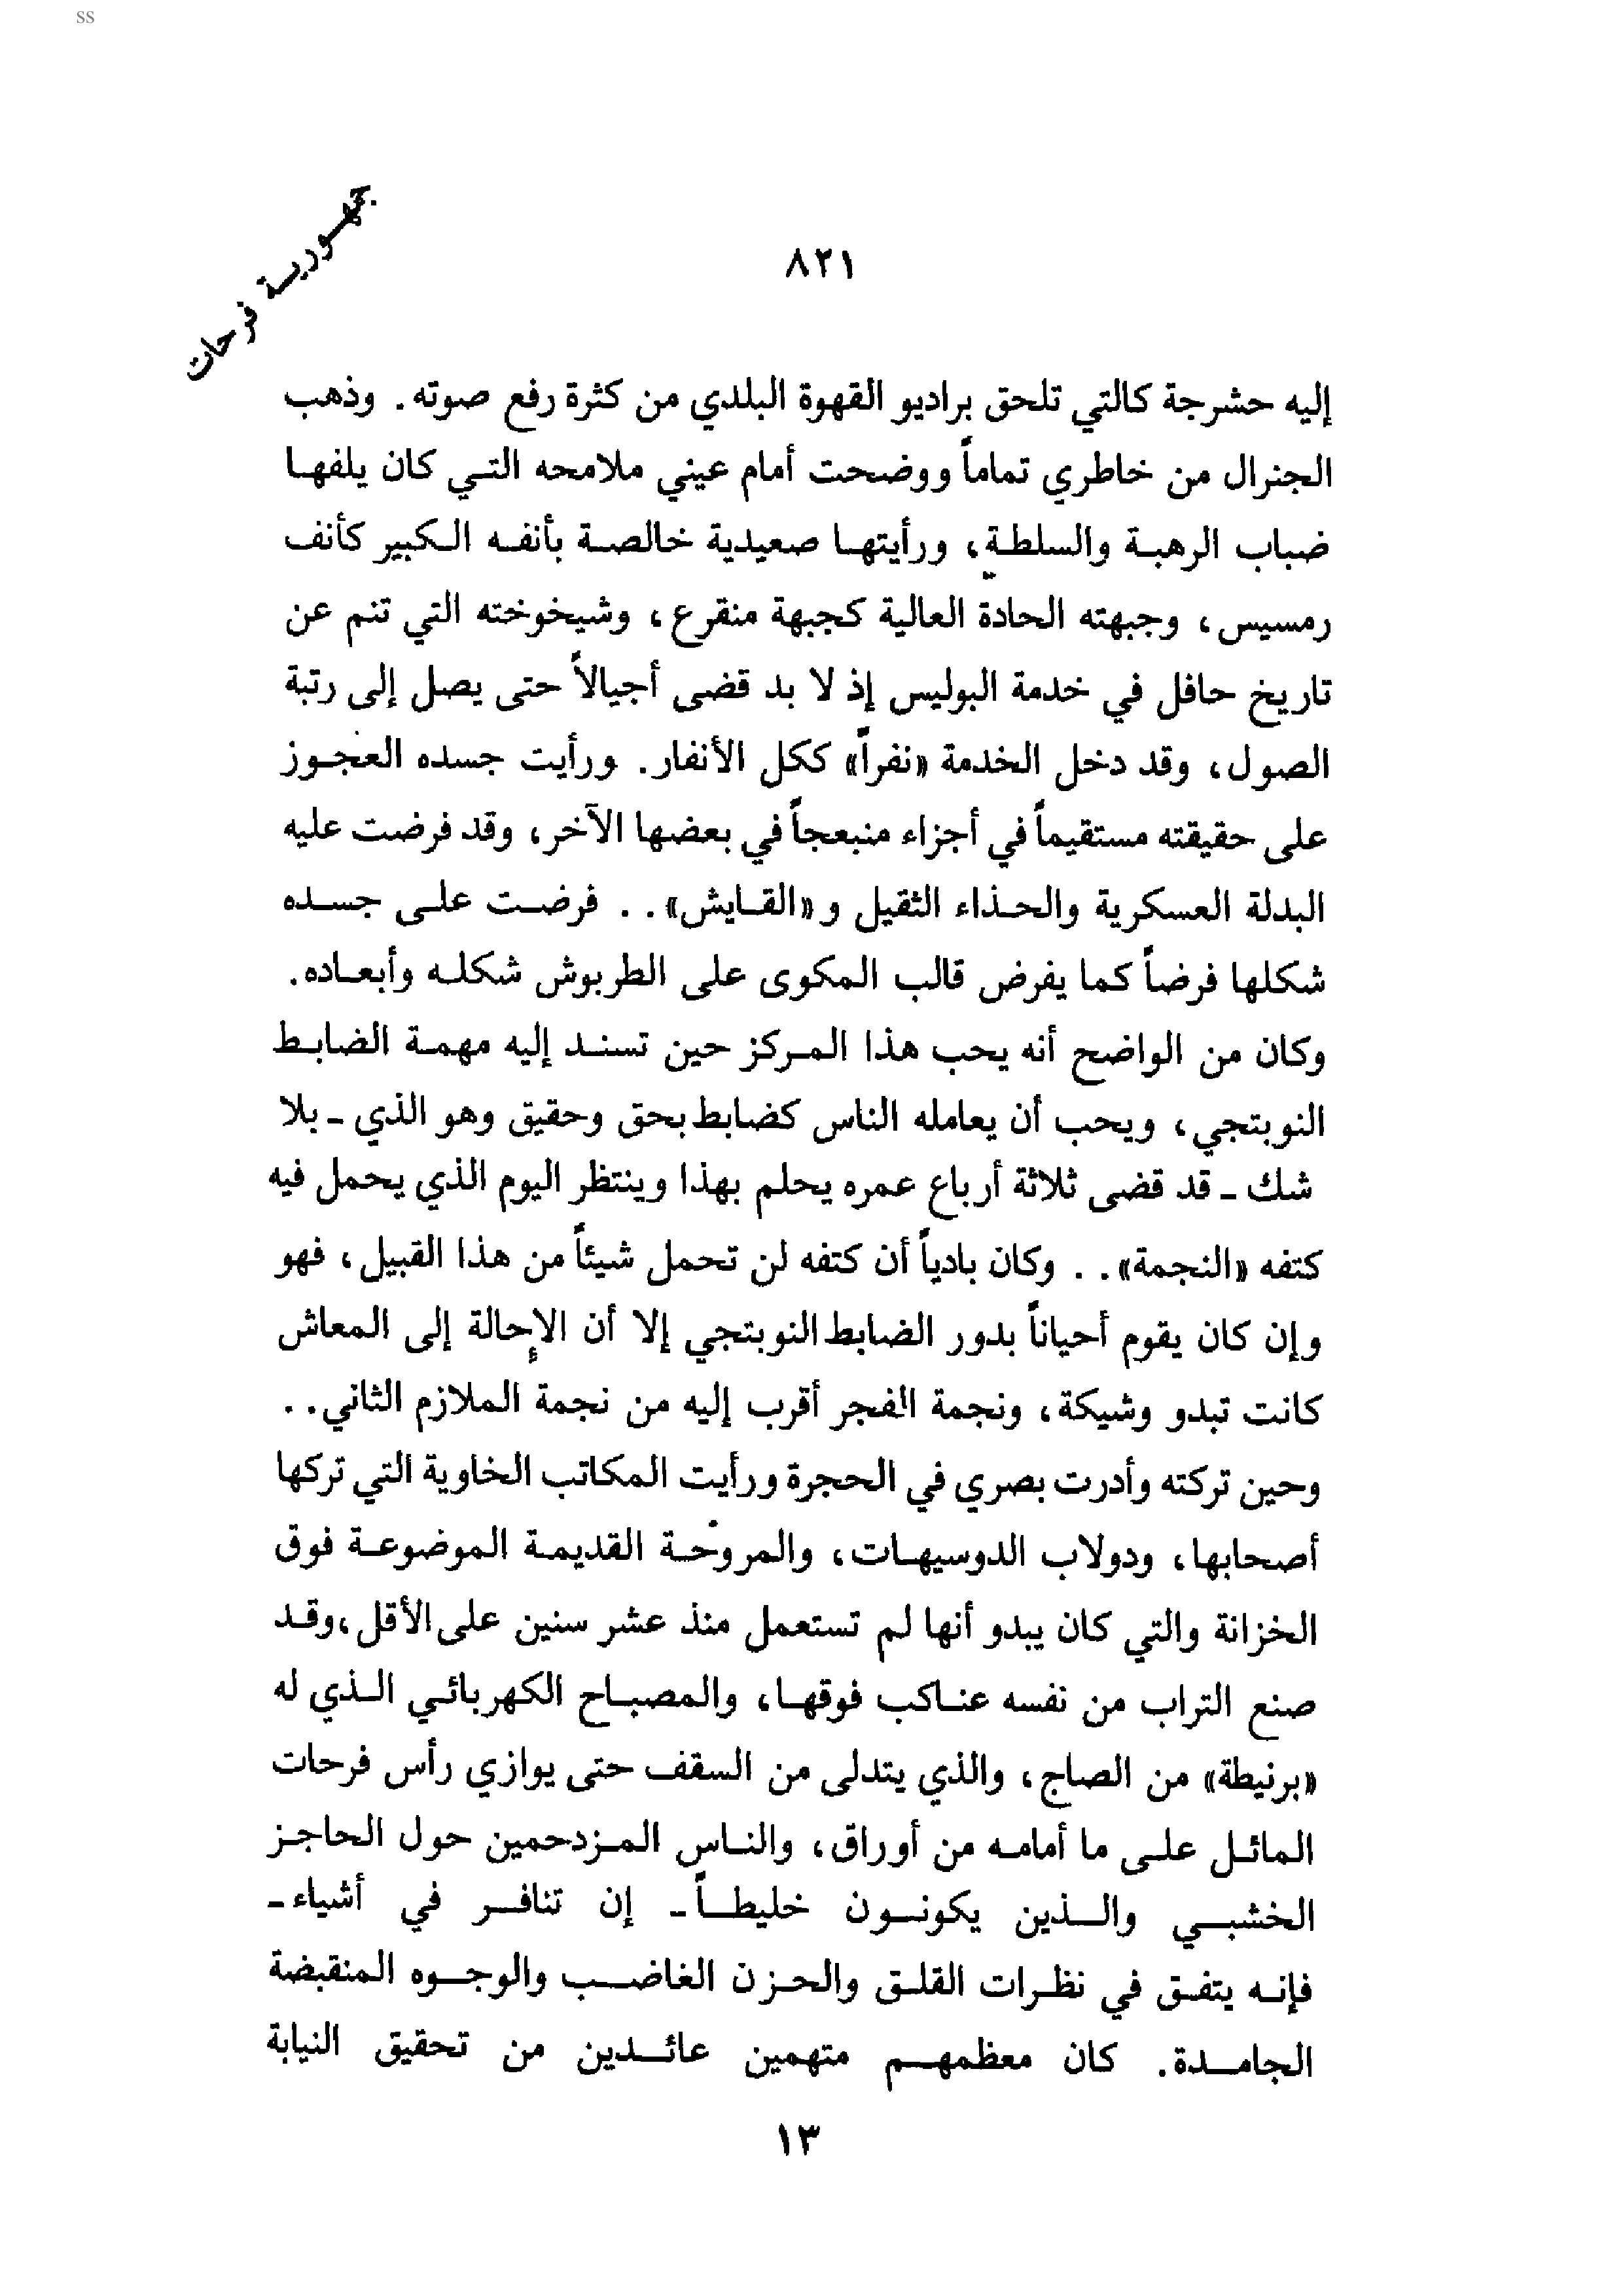 ss
جمهورية فرحات
٨٢١
إليه حشرجة كالتي تلحق براديو القهوة البلدي من كثرة رفع صوته. وذهب
الجنرال من خاطري تماماً ووضحت أمام عيني ملامحه التي كان يلفها
ضباب الرهبة والسلطة، ورأيتها صعيدية خالصة بأنفه الكبير كأنف
رمسيس، وجبهته الحادة العالية كجبهة منقرع، وشيخوخته التي تنم عن
تاريخ حافل في خدمة البوليس إذ لا بد قضى أجيالاً حتى يصل إلى رتبة
الصول، وقد دخل الخدمة «نفراً» ككل الأنفار. ورأيت جسده العجوز
على حقيقته مستقيماً في أجزاء منبعجاً في بعضها الآخر، وقد فرضت عليه
البدلة العسكرية والحذاء الثقيل و«القايش».. فرضت على جسده
شكلها فرضاً كما يفرض قالب المكوى على الطربوش شكله وأبعاده.
وكان من الواضح أنه يحب هذا المركز حين تسند إليه مهمة الضابط
النوبتجي، ويحب أن يعامله الناس كضابط بحق وحقيق وهو الذي ـ بلا
شك ـ قد قضى ثلاثة أرباع عمره يحلم بهذا وينتظر اليوم الذي يحمل فيه
كتفه «النجمة».. وكان بادياً أن كتفه لن تحمل شيئاً من هذا القبيل، فهو
وإن كان يقوم أحياناً بدور الضابط النوبتجي إلا أن الإحالة إلى المعاش
كانت تبدو وشيكة، ونجمة الفجر أقرب إليه من نجمة الملازم الثاني..
وحين تركته وأدرت بصري في الحجرة ورأيت المكاتب الخاوية التي تركها
أصحابها، ودولاب الدوسيهات، والمروحة القديمة الموضوعة فوق
الخزانة والتي كان يبدو أنها لم تستعمل منذ عشر سنين على الأقل، وقد
صنع التراب من نفسه عناكب فوقها، والمصباح الكهربائي الذي له
«برنيطة» من الصاج، والذي يتدلى من السقف حتى يوازي رأس فرحات
المائل على ما أمامه من أوراق، والناس المزدحمين حول الحاجز
الخشبي والذين يكونون خليطاً ـ إن تنافر في أشياء ـ
فإنه يتفق في نظرات القلق والحزن الغاضب والوجوه المنقبضة
الجامدة. كان معظمهم متهمين عائدين من تحقيق النيابة
١٣